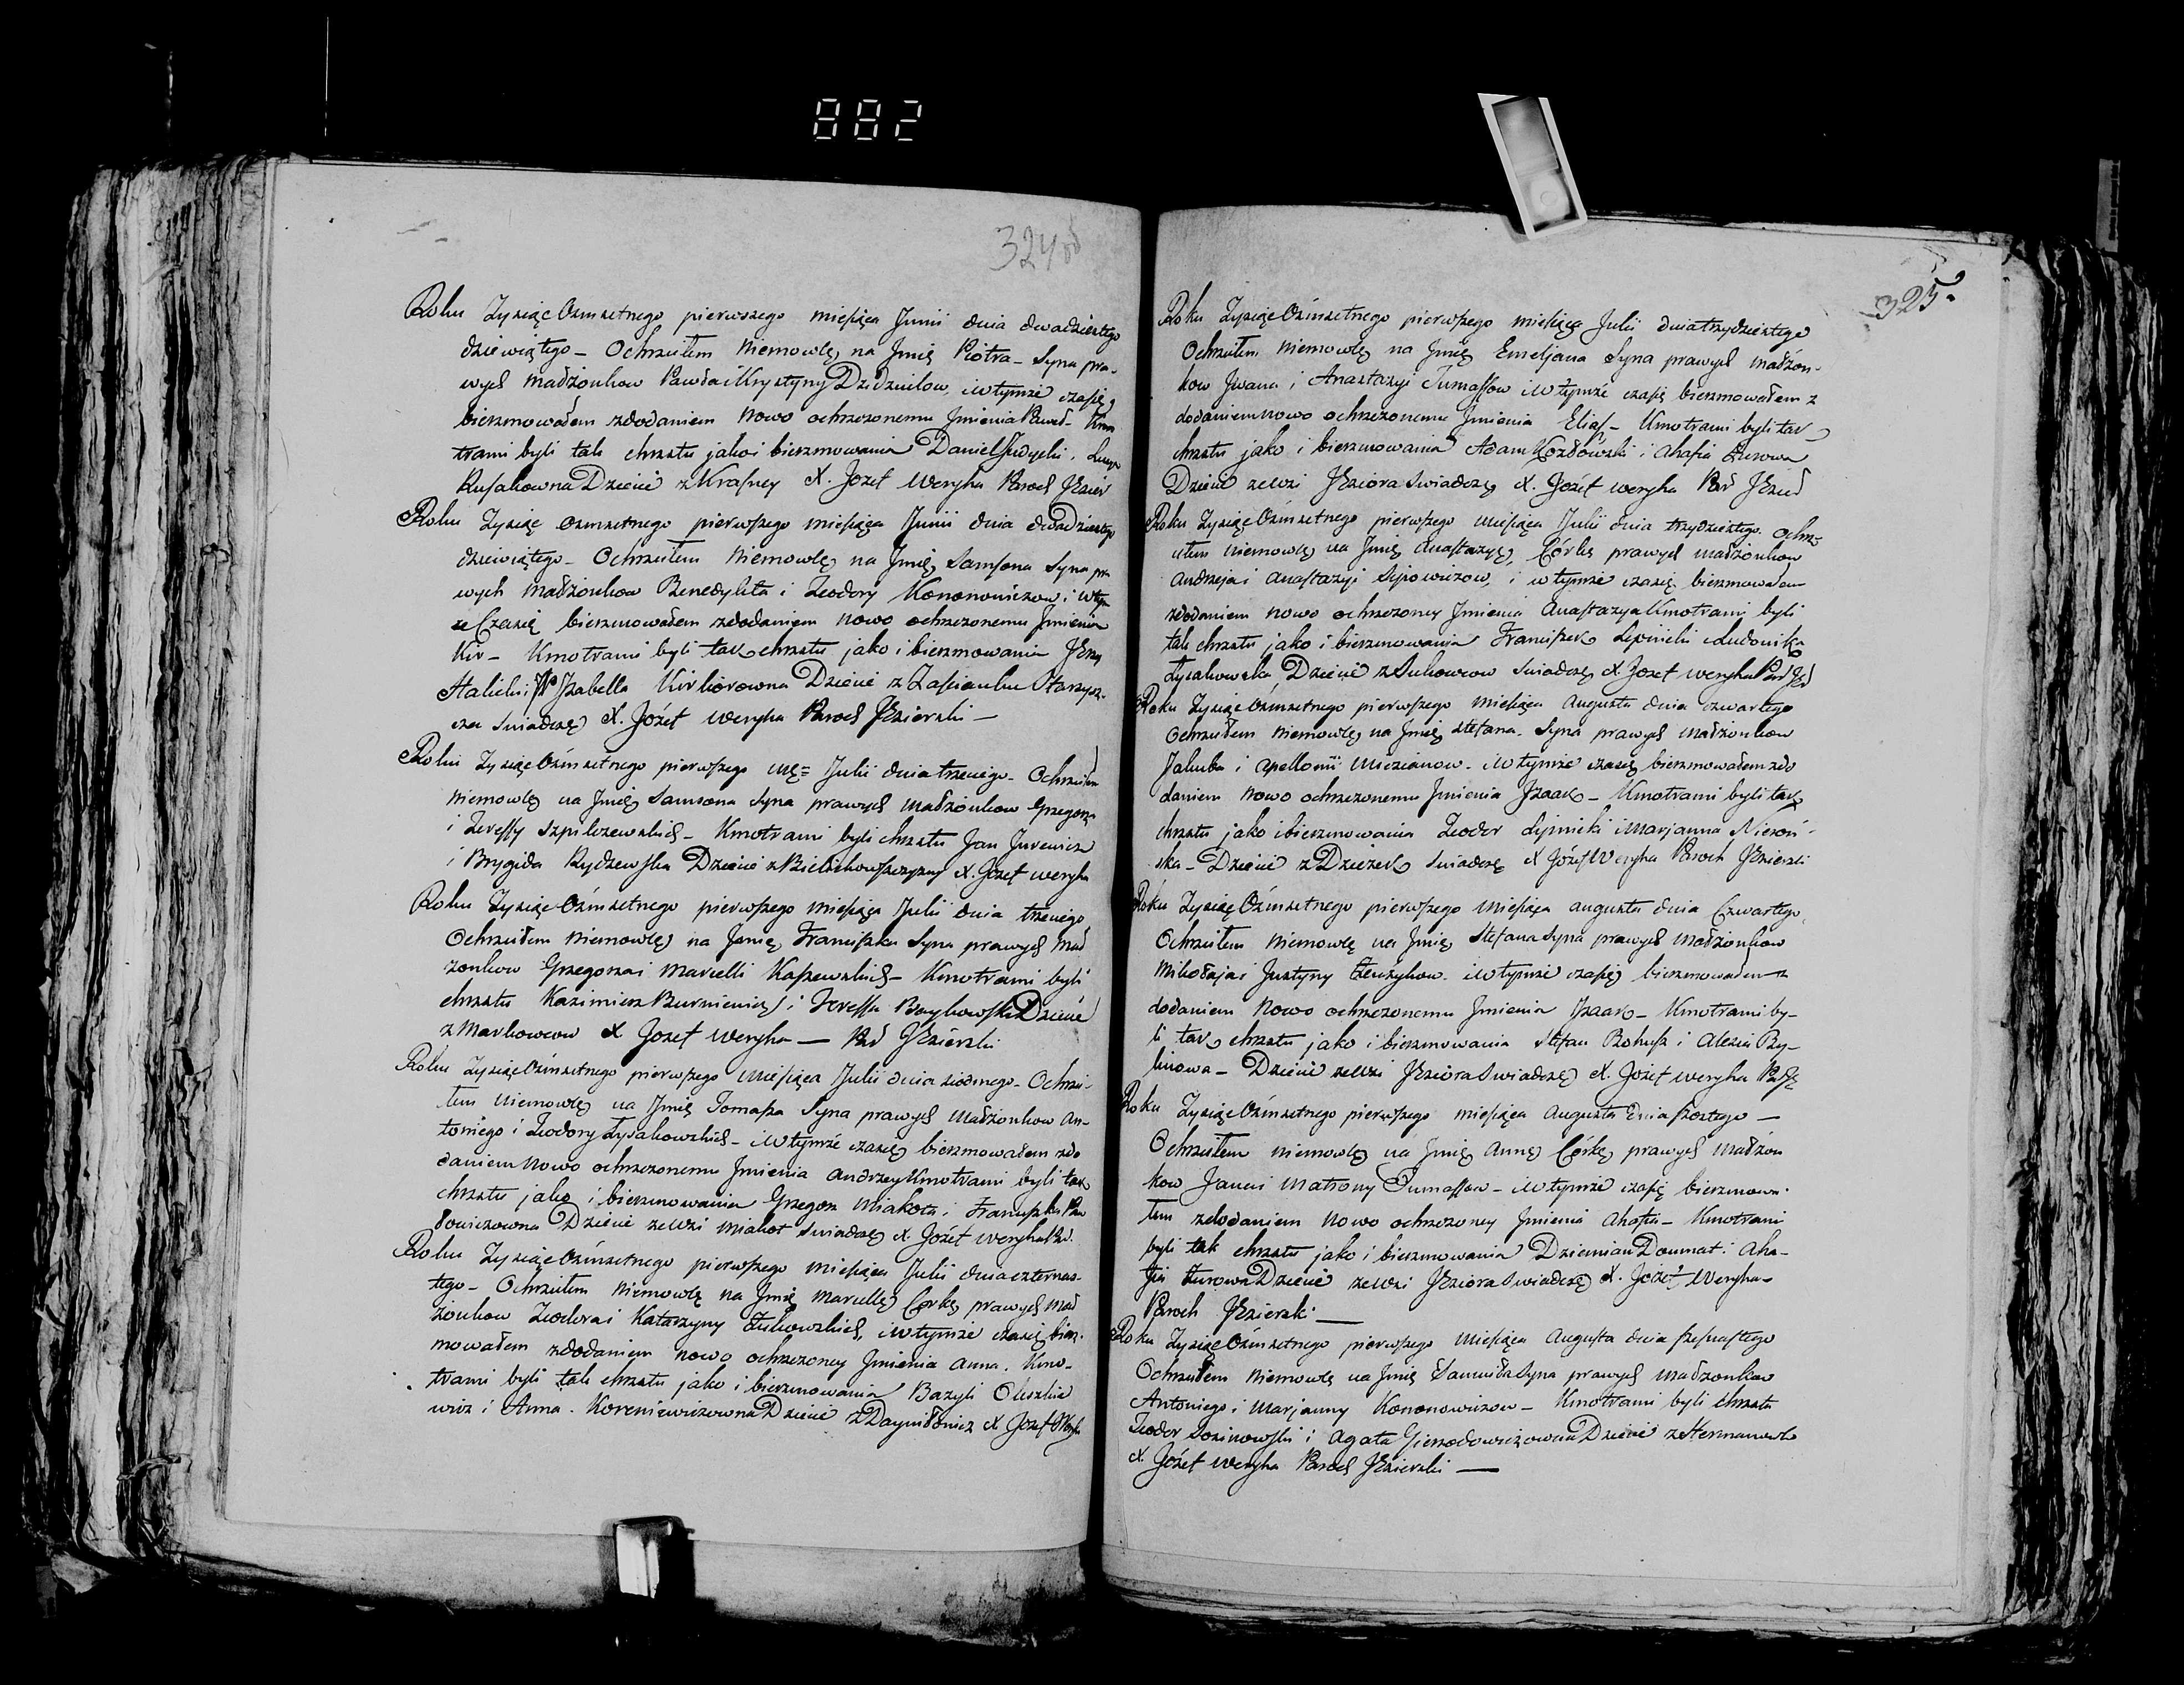 882
324 об
Roku Tysiąc Ośmsetnego pierwszego miesiąca Junii dnia dwadziestego
dziewiątego – Ochrzciłem Niemowlę na Jmię Piotra – Syna pra-
wych małżonkow Pawła i Krystyny Dzidziulow, i w tymże czasie
bierzmowałem z dodaniem Nowo ochrzczonemu Jmienia Paweł – Kmo
trami byli tak chrztu jako i bierzmowania Daniel
Rusakowna Dziecie z Krasney X. Jozef Weryha Paroch Jezier
Roku Tysiąc ośmsetnego pierwszego miesiąca Junii dnia dwadziestego
dziewiątego – Ochrzciłem Niemowlę na Jmię Samsona Syna pra
wych małżonkow Benedykta i Teodory Kononowiczow i w tym
że Czasie bierzmowałem z dodaniem nowo ochrzczonemu Jmienia
Kir – Kmotrami byli tak chrztu jako i bierzmowania Jerzy
Stalicki i Jzabella Kirkorowna Dziecie z Zascianku Starzyz-
cza Swiadczę X. Józef Weryha Paroch Jezierski –
Roku Tysiąc Ośmsetnego pierwszego mę= Julii dnia trzeciego – Ochrzciłem
Niemowlę na Jmię Samsona Syna prawych małżonkow Grzegorza
i Teressy Szpilczewskich – Kmotrami byli chrztu Jan Jurewicz
i Brygida Rydzewska Dziecie z X. Jozef Weryha
Roku Tysiąc Ośmsetnego pierwszego miesiąca Julii dnia trzeciego
Ochrzciłem Niemowlę na Jmię Franciszka Syna prawych mał
żonkow Grzegorza i Marcelli Kaszewskich – Kmotrami byli
chrztu Kazimierz Burniewicz i Teressa Borykowska Dziecie
z Markowcow X Jozef Weryha — Par Jezierski
Roku Tysiąc Ośmsetnego pierwszego Miesiąca Julii dnia siodmego – Ochrzci-
łem niemowlę na Jmię Tomasza Syna prawych Małżonkow An-
toniego i Teodory Łysakowskich – i w tymże czasie bierzmowałem z do
daniem Nowo ochrzczonemu Jmienia Andrzey Kmotrami byli tak
chrztu jako i bierzmowania Grzegorz Miakota i Franciszka Paw
łowiczowna Dziecie ze wsi Miakot Swiadczę X. Józef Weryha Par.
Roku Tysiąc Ośmsetnego pierwszego miesiąca Julii dnia czternas-
tego – Ochrzciłem Niemowlę na Jmię Marcellę Corkę prawych mał
żonkow Teodora i Katarzyny Żukowskich, i w tymże czasie bierz-
mowałem z dodaniem nowo ochrzczoney Jmienia Anna. Kmo-
trami byli tak chrztu jako i bierzmowania Bazyli Oleszkie
wicz i Anna Koreniewiczowna Dziecie z X Jozef Weryha
325.
Roku Tysiąc Ośmsetnego pierwszego miesiąca Julii dnia trzydziestego
Ochrzciłem Niemowlę na Jmię Emeljana Syna prawych małżon-
kow Jwana i Anastazyi Tumassow i w tymże czasie bierzmowałem z
dodaniem nowo ochrzczonemu Jmienia Eliasz – Kmotrami byli tak
chrztu jako i bierzmowania Adam Kozłowski i Ahafia Żurowa
Dziecie ze wsi Jeziora Swiadczę X. Józef Weryha Par Jezier
Roku Tysiąc Ośmsetnego pierwszego miesiąca Julii dnia trzydziestego. Ochrz
ciłem niemowlę na Jmię Anastazyę, Córkę prawych małżonkow
Andrzeja i Anastazyi Sipowiczow, i w tymże czasie bierzmowałem
z dodaniem nowo ochrzczoney Jmienia Anastazya Kmotrami byli
tak chrztu jako i bierzmowania Franciszek Lipnicki i Ludowika
Łysakowska Dziecie z Sukowcow Swiadczę X Jozef Weryha Par Jez
Roku Tysiąc Ośmsetnego pierwszego miesiąca Augusta dnia czwartego
Ochrzciłem Niemowlę na Jmię Stefana Syna prawych małżonkow
Jakuba i Apellonii Mieżianow – i w tymże czasie bierzmowałem z do
daniem Nowo ochrzczonemu Jmienia Jzaak – Kmotrami byli tak
chrztu jako i bierzmowania Teodor Lipnicki i Marjanna
ska – Dziecie z Swiadczę X Józef Weryha Paroch Jezierski
Roku Tysiąc Ośmsetnego pierwszego miesiąca Augusta dnia Czwartego,
Ochrzciłem Niemowlę na Jmię Stefana Syna prawych małżonkow
Mikołaja i Justyny . i w tymże czasie bierzmowałem z
dodaniem Nowo ochrzczonemu Jmienia Jzaak – Kmotrami by-
li tak chrztu jako i bierzmowania Stefan Bohusz i Alezia By-
linowa – Dziecie ze wsi Jeziora Swiadczę X. Jozef Weryha Par Je
Roku Tysiąc Ośmsetnego pierwszego miesiąca Augusta dnia szostego —
Ochrzciłem niemowlę na Jmię Annę Córkę prawych małżon
kow Jana i Matrony Tumassow – i w tymże czasie bierzmowa-
łem z dodaniem Nowo ochrzczoney Jmienia Ahafia – Kmotrami
byli tak chrztu jako i bierzmowania Dziemian Doumat i Aha-
fia Żurowa Dziecie ze wsi Jeziora Swiadczę X. Józef Weryha
Paroch Jezierski —
Roku Tysiąc Ośmsetnego pierwszego miesiąca Augusta dnia szesnastego
Ochrzciłem Niemowlę na Jmię Samuiła Syna prawych małżonkow
Antoniego i Marjanny Kononowiczow – Kmotrami byli chrztu
Teodor Sosinowski i Agata Dziecie z Hermanowk
X. Józef Weryha Paroch Jezierski —